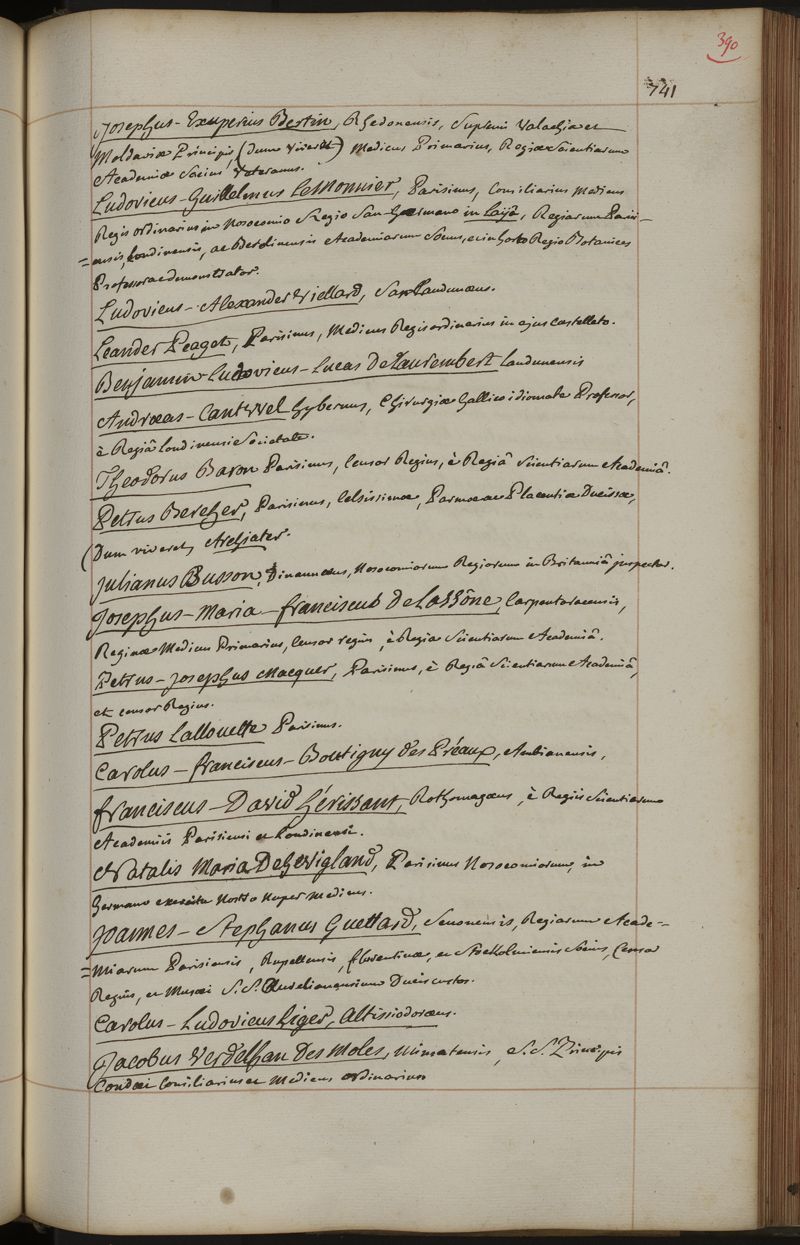 390
741
Josephus-Exuperius Bertin, Rhedonensis, Supremi Valachiæ et
Moldaviæ Principis, (dum viveret) Medicus Primarius, Regiæ Scientiarum
Academiæ Socius Veteranus.
Ludovicus-Guillelmus LeMonnier, Parisinus, Consiliarius Medicus
Regis ordinarius in Nosocomio Regio San-Germano in Laiyâ, Regiarum Pari-
=ensis, Londinensis, ac Berolinensis Academiarum Socius, ac in horto Regio Botanices
Professor ac demonstrator.
Ludovicus-Alexander Viellard, Sanlaudunæus.
Leander Peaget, Parisinus, Medicus Regis ordinarius in ejus Castelleto.
Benjamin-Ludovicus-Lucas De Laurembert Laudunensis
Andræas-Cantwel Hybernus, Chirurgiæ Gallico idiomate Professor,
è Regiâ Londinensi Societate.
Theodorus Baron Parisinus, Censor Regius, è Regiâ Scientiarum Academiâ.
Petrus Bercher, Parisinus, Celsissimæ, Parmæ ac Placentiæ Ducissæ,
(Dum viveret, Archiater.
Julianus Busson, Dinannæus, Nosocomiorum Regiorum in Britanniâ inspector.
Josephus-Maria-franciscus de Lassône, Carpentoracensis,
Reginæ Medicus Primarius, Censor regius, è Regia Scientiarum Academiâ.
Petrus-Josephus Macquer, Parisinus, è Regiâ Scientiarum Academiâ,
et censor Regius.
Petrus Lallouette Parisinus.
Carolus-franciscus-Boutigny des Préaux, Ambianensis,
franciscus-David Hérissant, Rothomagæus, è Regiis Scientiarum
Academiis Parisiensi et Londinensi.
Natalis Maria De Gevigland, Parisinus Nosocomiorum, in
Germano exercitu Nostro nuper medicus.
Joannes-Stephanus Guettard, Senonensis, Regiarum Acade-
=miarum Parisiensis, Rupellensis, florentinæ, et Stockolmiensis Socius, Censor
Regius, et Musæi S.S. Aurelianensium Ducis custos.
Carolus-Ludovicus Liger, Altissiodoræus.
Jacobus Verdelhan Des Moles, Mimatensis, S.S. Principis
Condæi Consiliarius et Medicus ordinarius